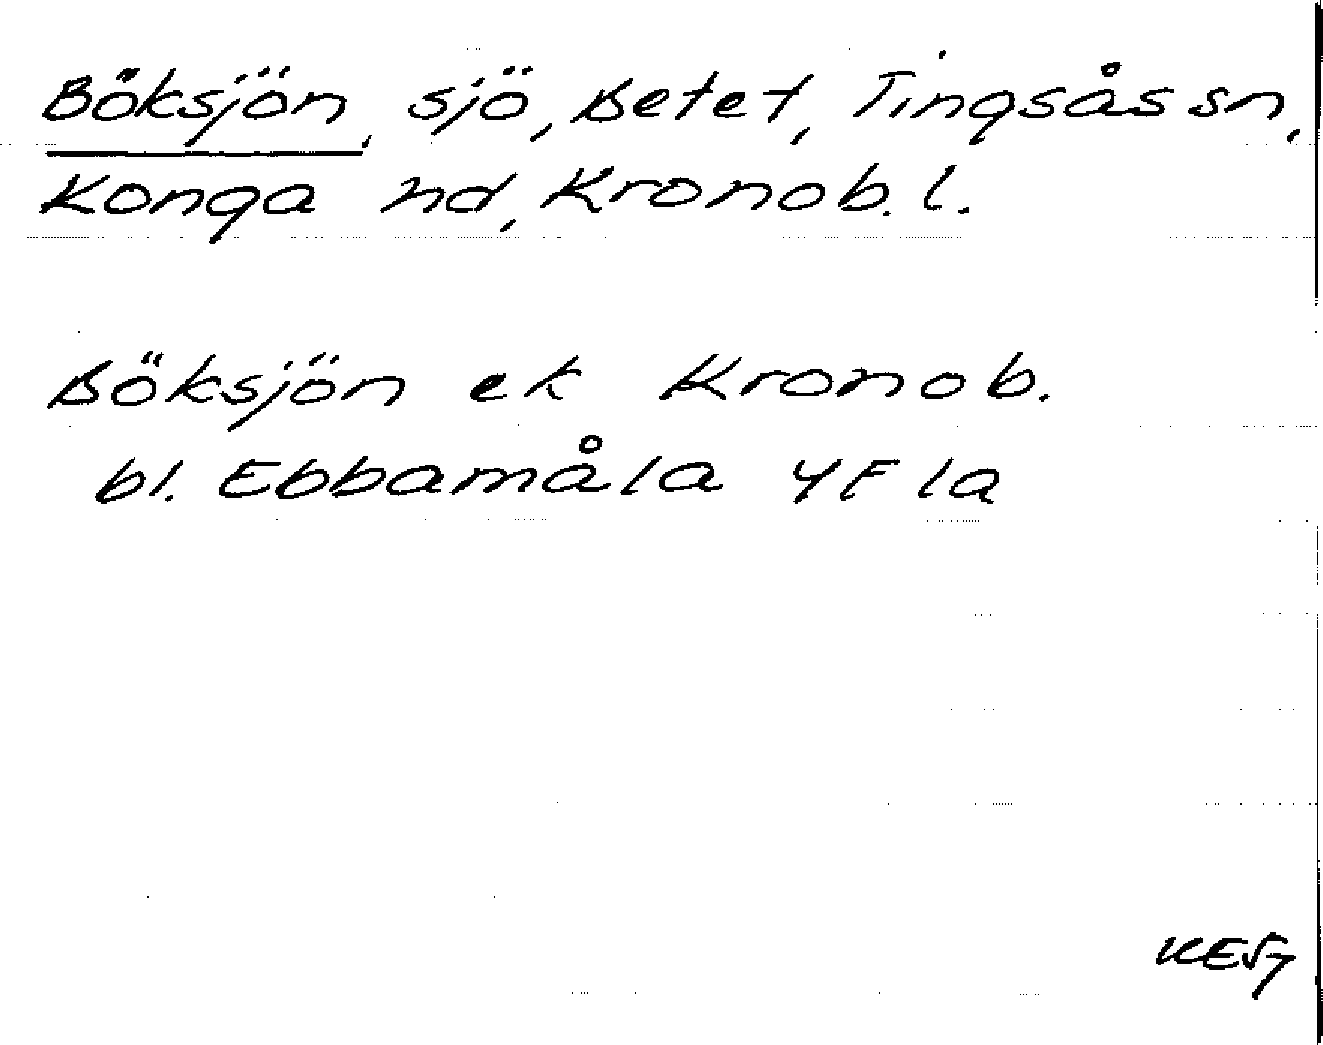 Böksjön, sjö, Betet, Tingsås sn,
Konga hd, Kronob. l.
Böksjön ek Kronob.
bl. Ebbamåla 4F 1a